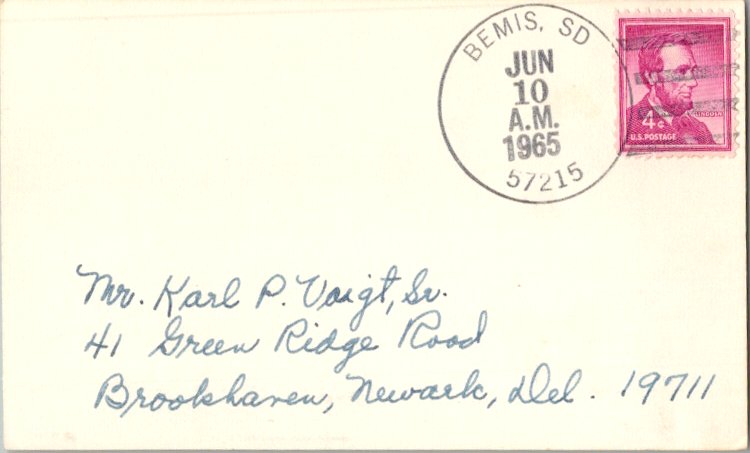 BEMIS, SD
JUN
10
A.M.
1965
57215
LINCOLN
4¢
U.S. POSTAGE
Mr. Karl P. Voigt, Sr.
41 Green Ridge Road
Brookhaven, Newark, Del. 19711